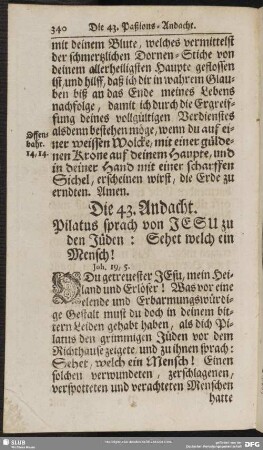 340 Die 43. Paßions-Andacht.
mit deinem Blute, welches vermittelst
der schmertzlichen Dornen-Stiche von
deinem allerheiligsten Haupte geflossen
ist, und hilff, daß ich dir in wahrem Glau-
ben biß an das Ende meines Lebens
nachfolge, damit ich durch die Ergreif-
fung deines vollgültigen Verdienstes
alsdenn bestehen möge, wenn du auf ei-
Offen-
bahr.
14, 14.
ner weissen Wolcke, mit einer gülde-
nen Krone auf deinem Haupte, und
in deiner Hand mit einer scharffen
Sichel, erscheinen wirst, die Erde zu
erndten. Amen.
Die 43. Andacht.
Pilatus sprach von JESU zu
den Jüden: Sehet welch ein
Mensch!
Joh. 19, 5.
DU getreuester JEsu, mein Hei-
land und Erlöser! Was vor eine
elende und Erbarmungswürdi-
ge Gestalt must du doch in deinem bit-
tern Leiden gehabt haben, als dich Pi-
latus den grimmigen Jüden vor dem
Richthause zeigete, und zu ihnen sprach:
Sehet, welch ein Mensch! Einen
solchen verwundeten, zerschlagenen,
verspotteten und verachteten Menschen
hatte
SLUB